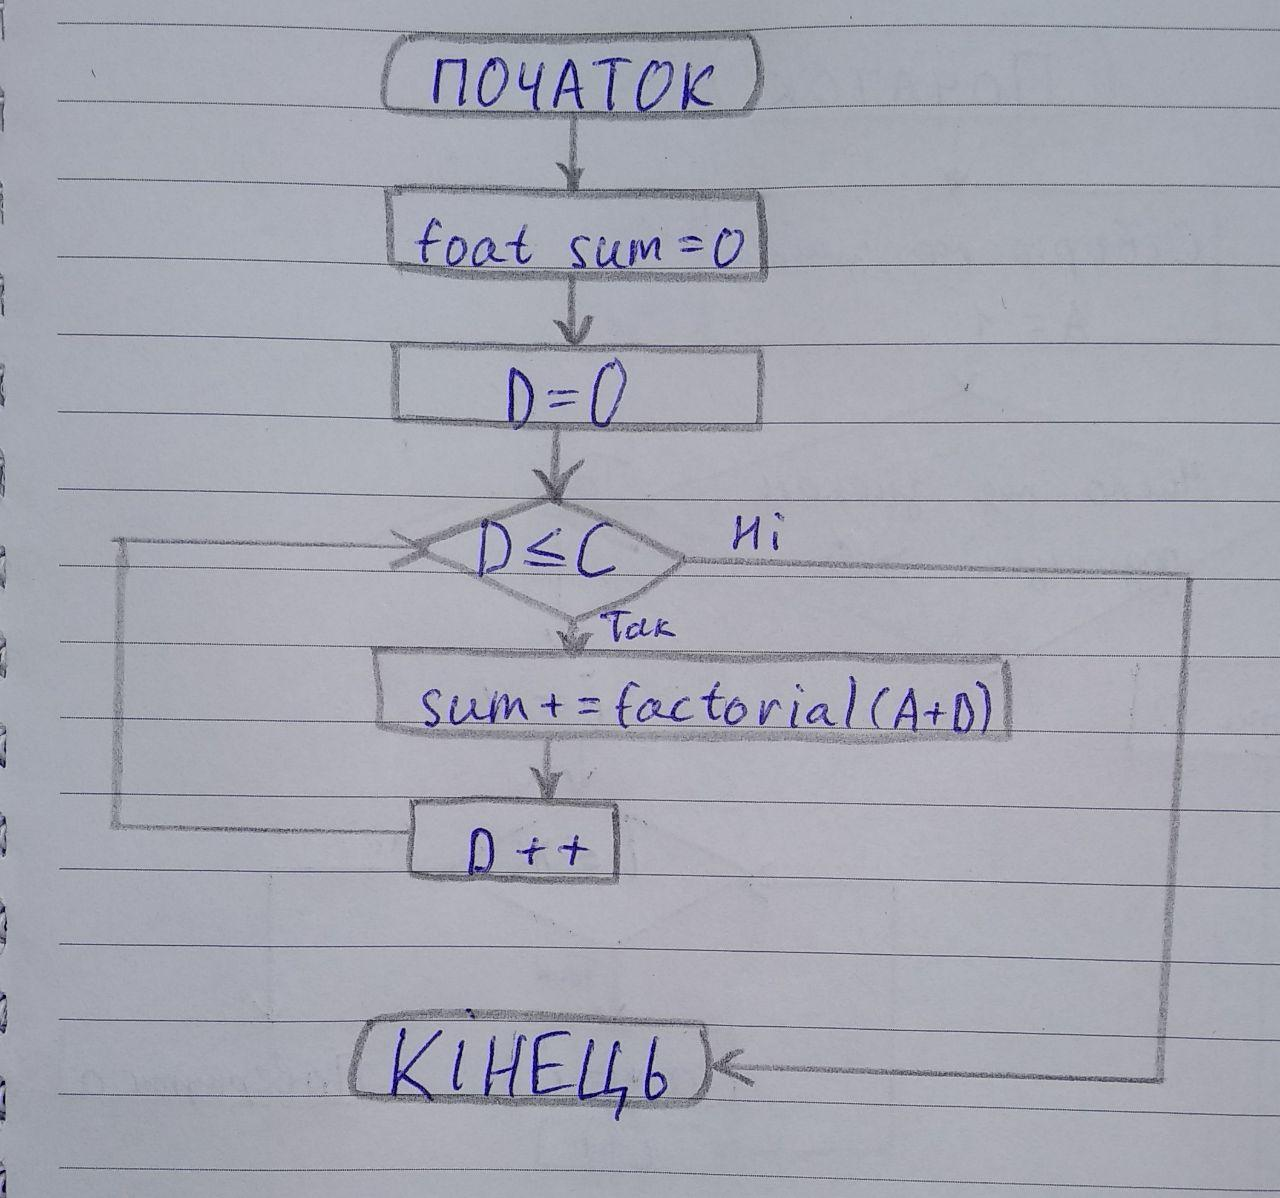 ПОЧАТОК
foat sum = 0
D = 0
D ≤ C
Ні
Так
sum + = factorial (A+D)
D + +
КІНЕЦЬ